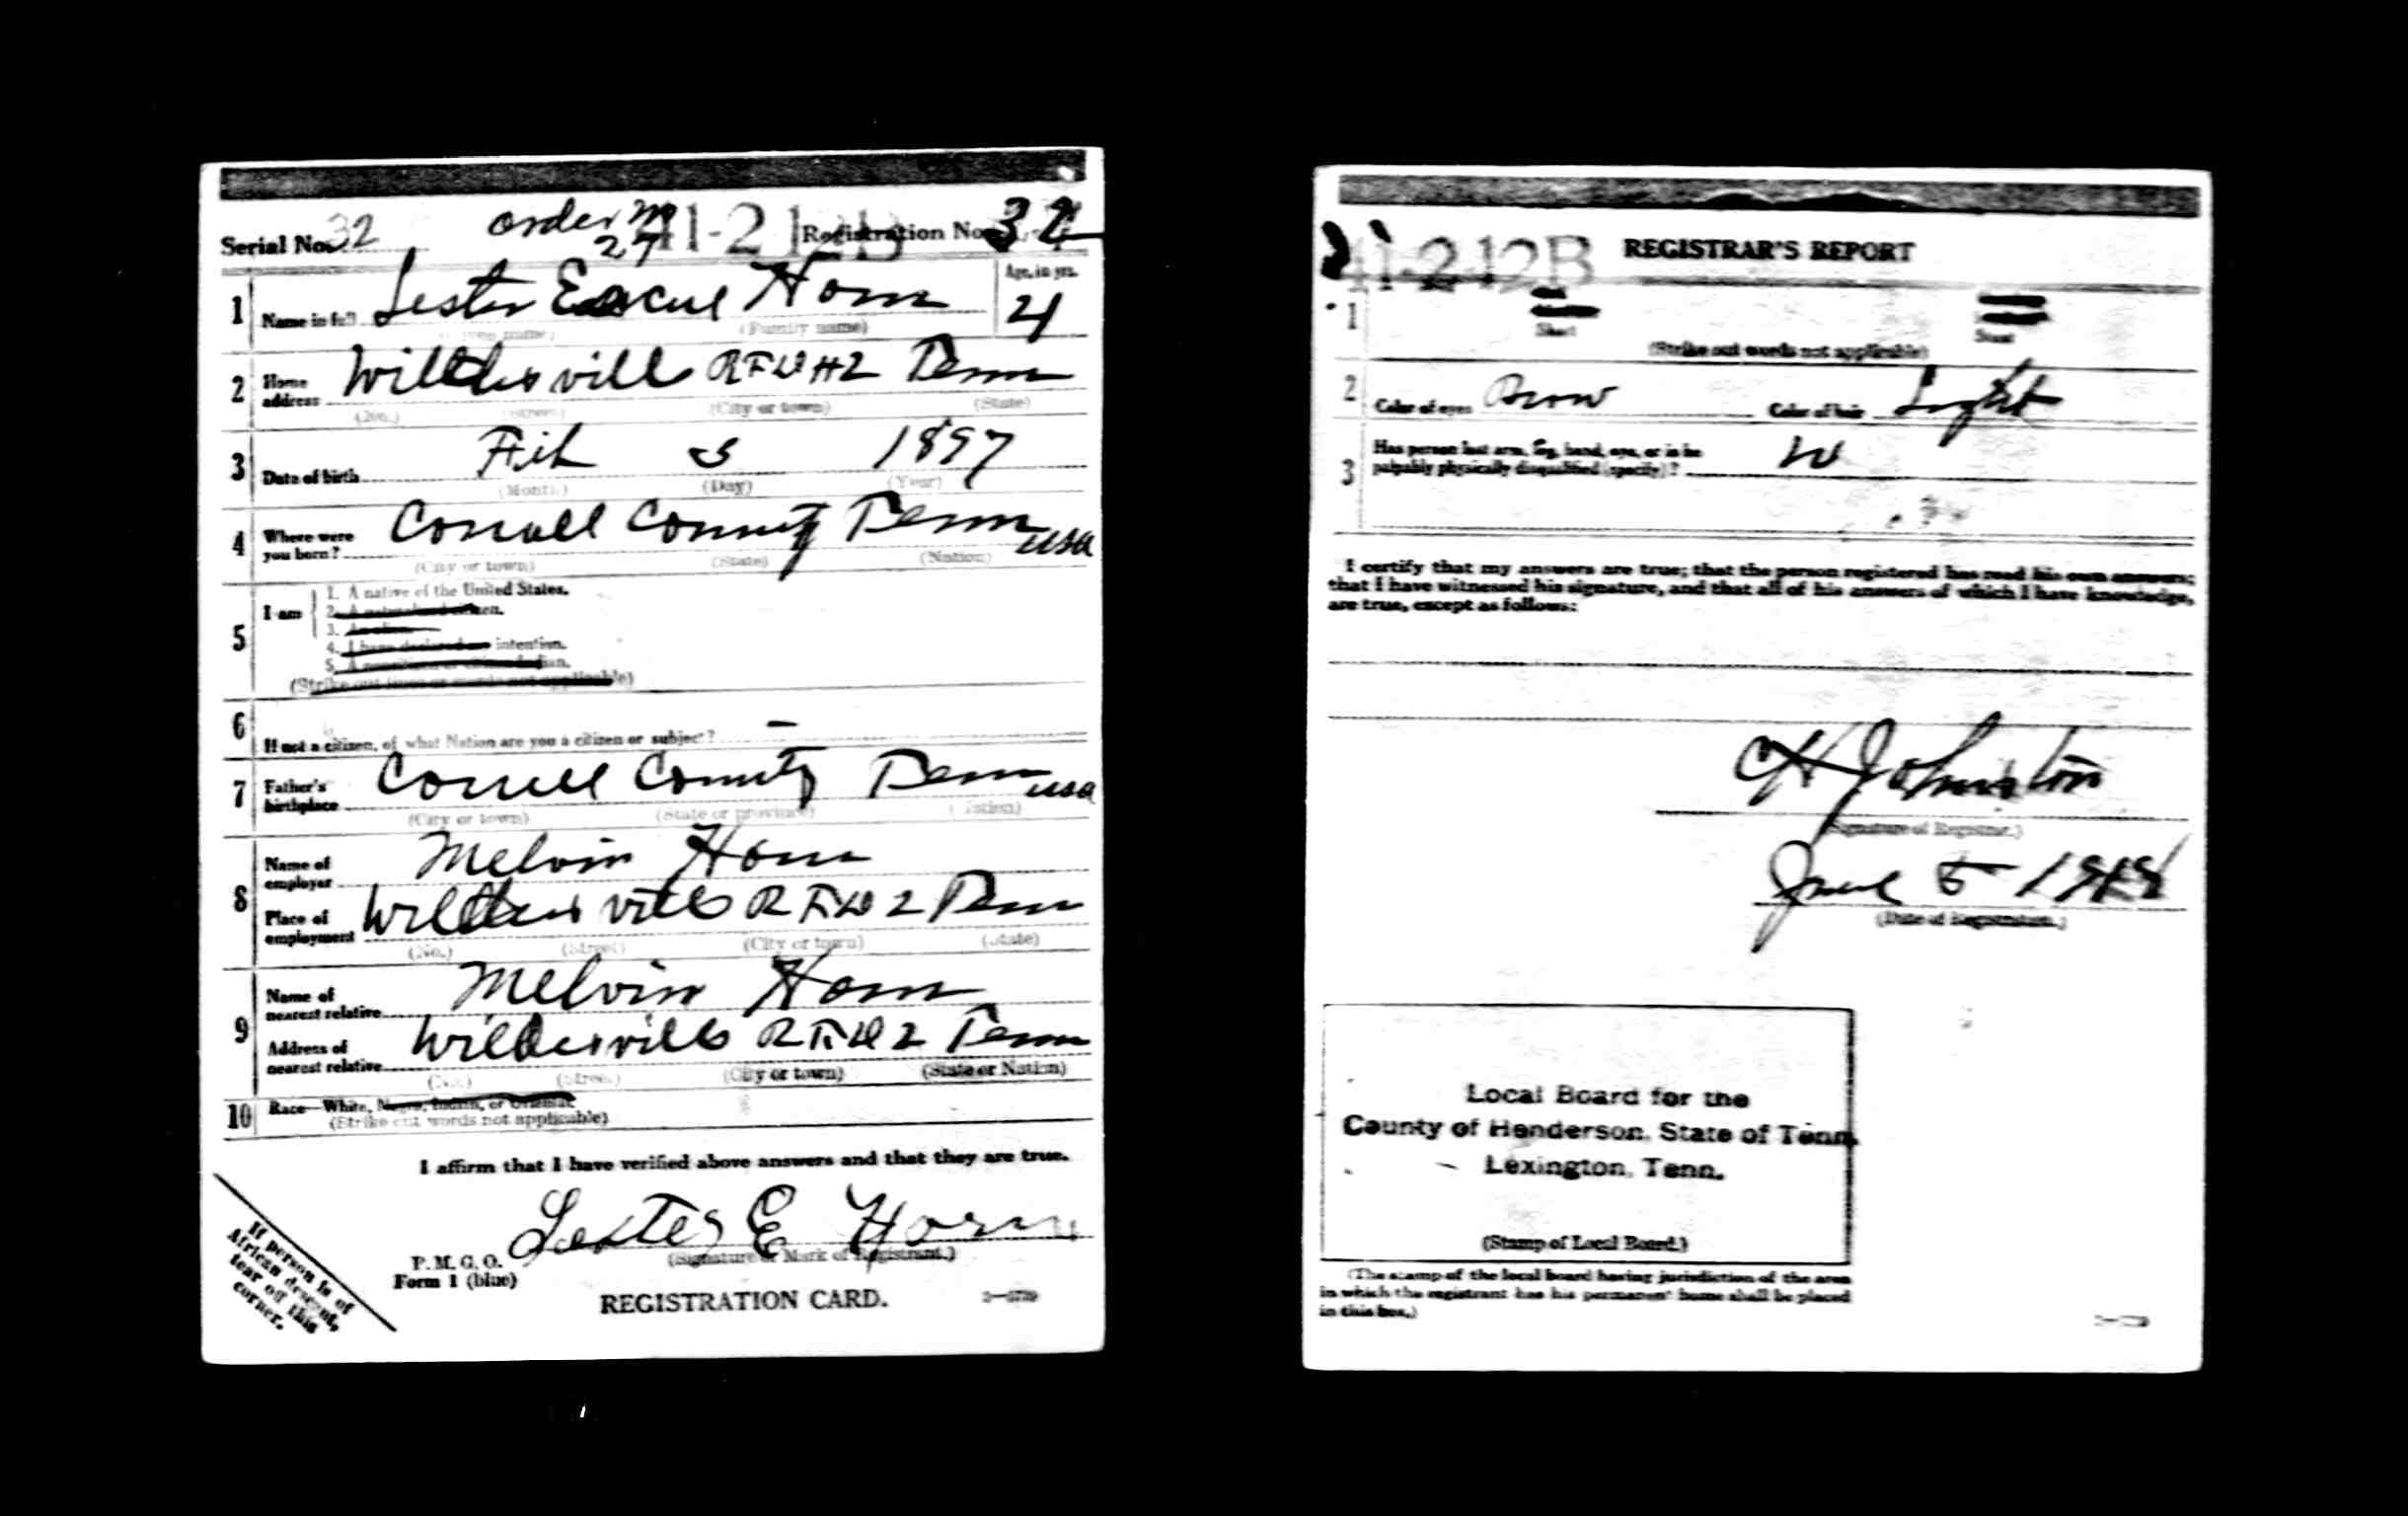 Serial No. 32 order no 27 41-2 12 B Registration No. 32
1 Name in full Lester Horn Age, in yrs. 21
(Family name)
2 Home address RFD #2 Tenn
(No.) (Street) (City or town) (State)
3 Date of birth Feb 1897
(Month) (Day) (Year)
4 Where were you born? County Tenn usa
(City or town) (State) (Nation)
5 I am
1. A native of the United States.
2. A naturalized citizen.
3. An alien.
4. I have declared my intention.
5. A noncitizen or citizen Indian.
(Strike out lines or words not applicable)
6 If not a citizen, of what Nation are you a citizen or subject? —
7 Father's birthplace County Tenn usa
(City or town) (State or province) (Nation)
8 Name of employer Melvin Horn
Place of employment RFD 2 Tenn
(No.) (Street) (City or town) (State)
9 Name of nearest relative Melvin Horn
Address of nearest relative RFD 2 Tenn
(No.) (Street) (City or town) (State or Nation)
10 Race—White, Negro, Indian, or Oriental.
(Strike out words not applicable)
I affirm that I have verified above answers and that they are true.
Lester E Horn
(Signature or Mark of Registrant.)
P. M. G. O.
Form 1 (blue)
REGISTRATION CARD.
If person is of
African descent,
tear off this
corner.
41-2-12B REGISTRAR'S REPORT
1 Short Stout
(Strike out words not applicable)
2 Color of eyes Brow Color of hair Light
3 Has person lost arm, leg, hand, eye, or is he
palpably physically disqualified (specify)?
I certify that my answers are true; that the person registered has read his own answers;
that I have witnessed his signature, and that all of his answers of which I have knowledge,
are true, except as follows:
Johnston
(Signature of Registrar.)
June 5 1918
(Date of Registration.)
Local Board for the
County of Henderson, State of Tenn.
Lexington, Tenn.
(Stamp of Local Board.)
(The stamp of the local board having jurisdiction of the area
in which the registrant has his permanent home shall be placed
in this box.)